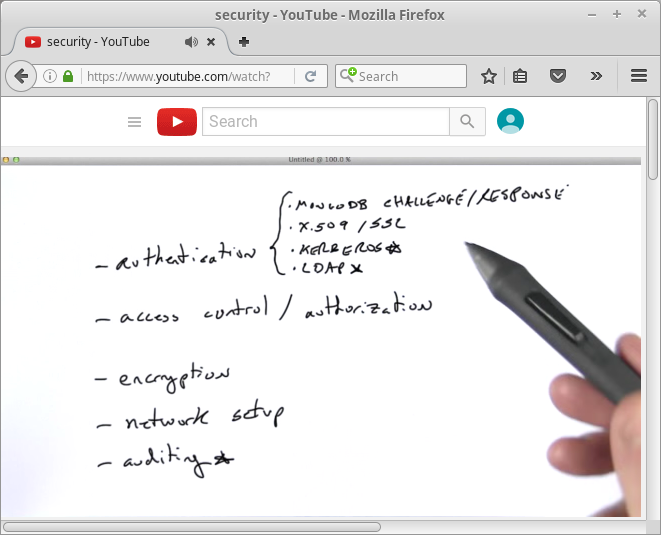 security - YouTube - Mozilla Firefox
security - YouTube
https://www.youtube.com/watch?
Search
Search
Untitled @ 100.0 %
· MONGODB CHALLENGE/RESPONSE
· X.509 / SSL
· KERBEROS
· LDAP
- authentication
- access control / authorization
- encryption
- network setup
- auditing